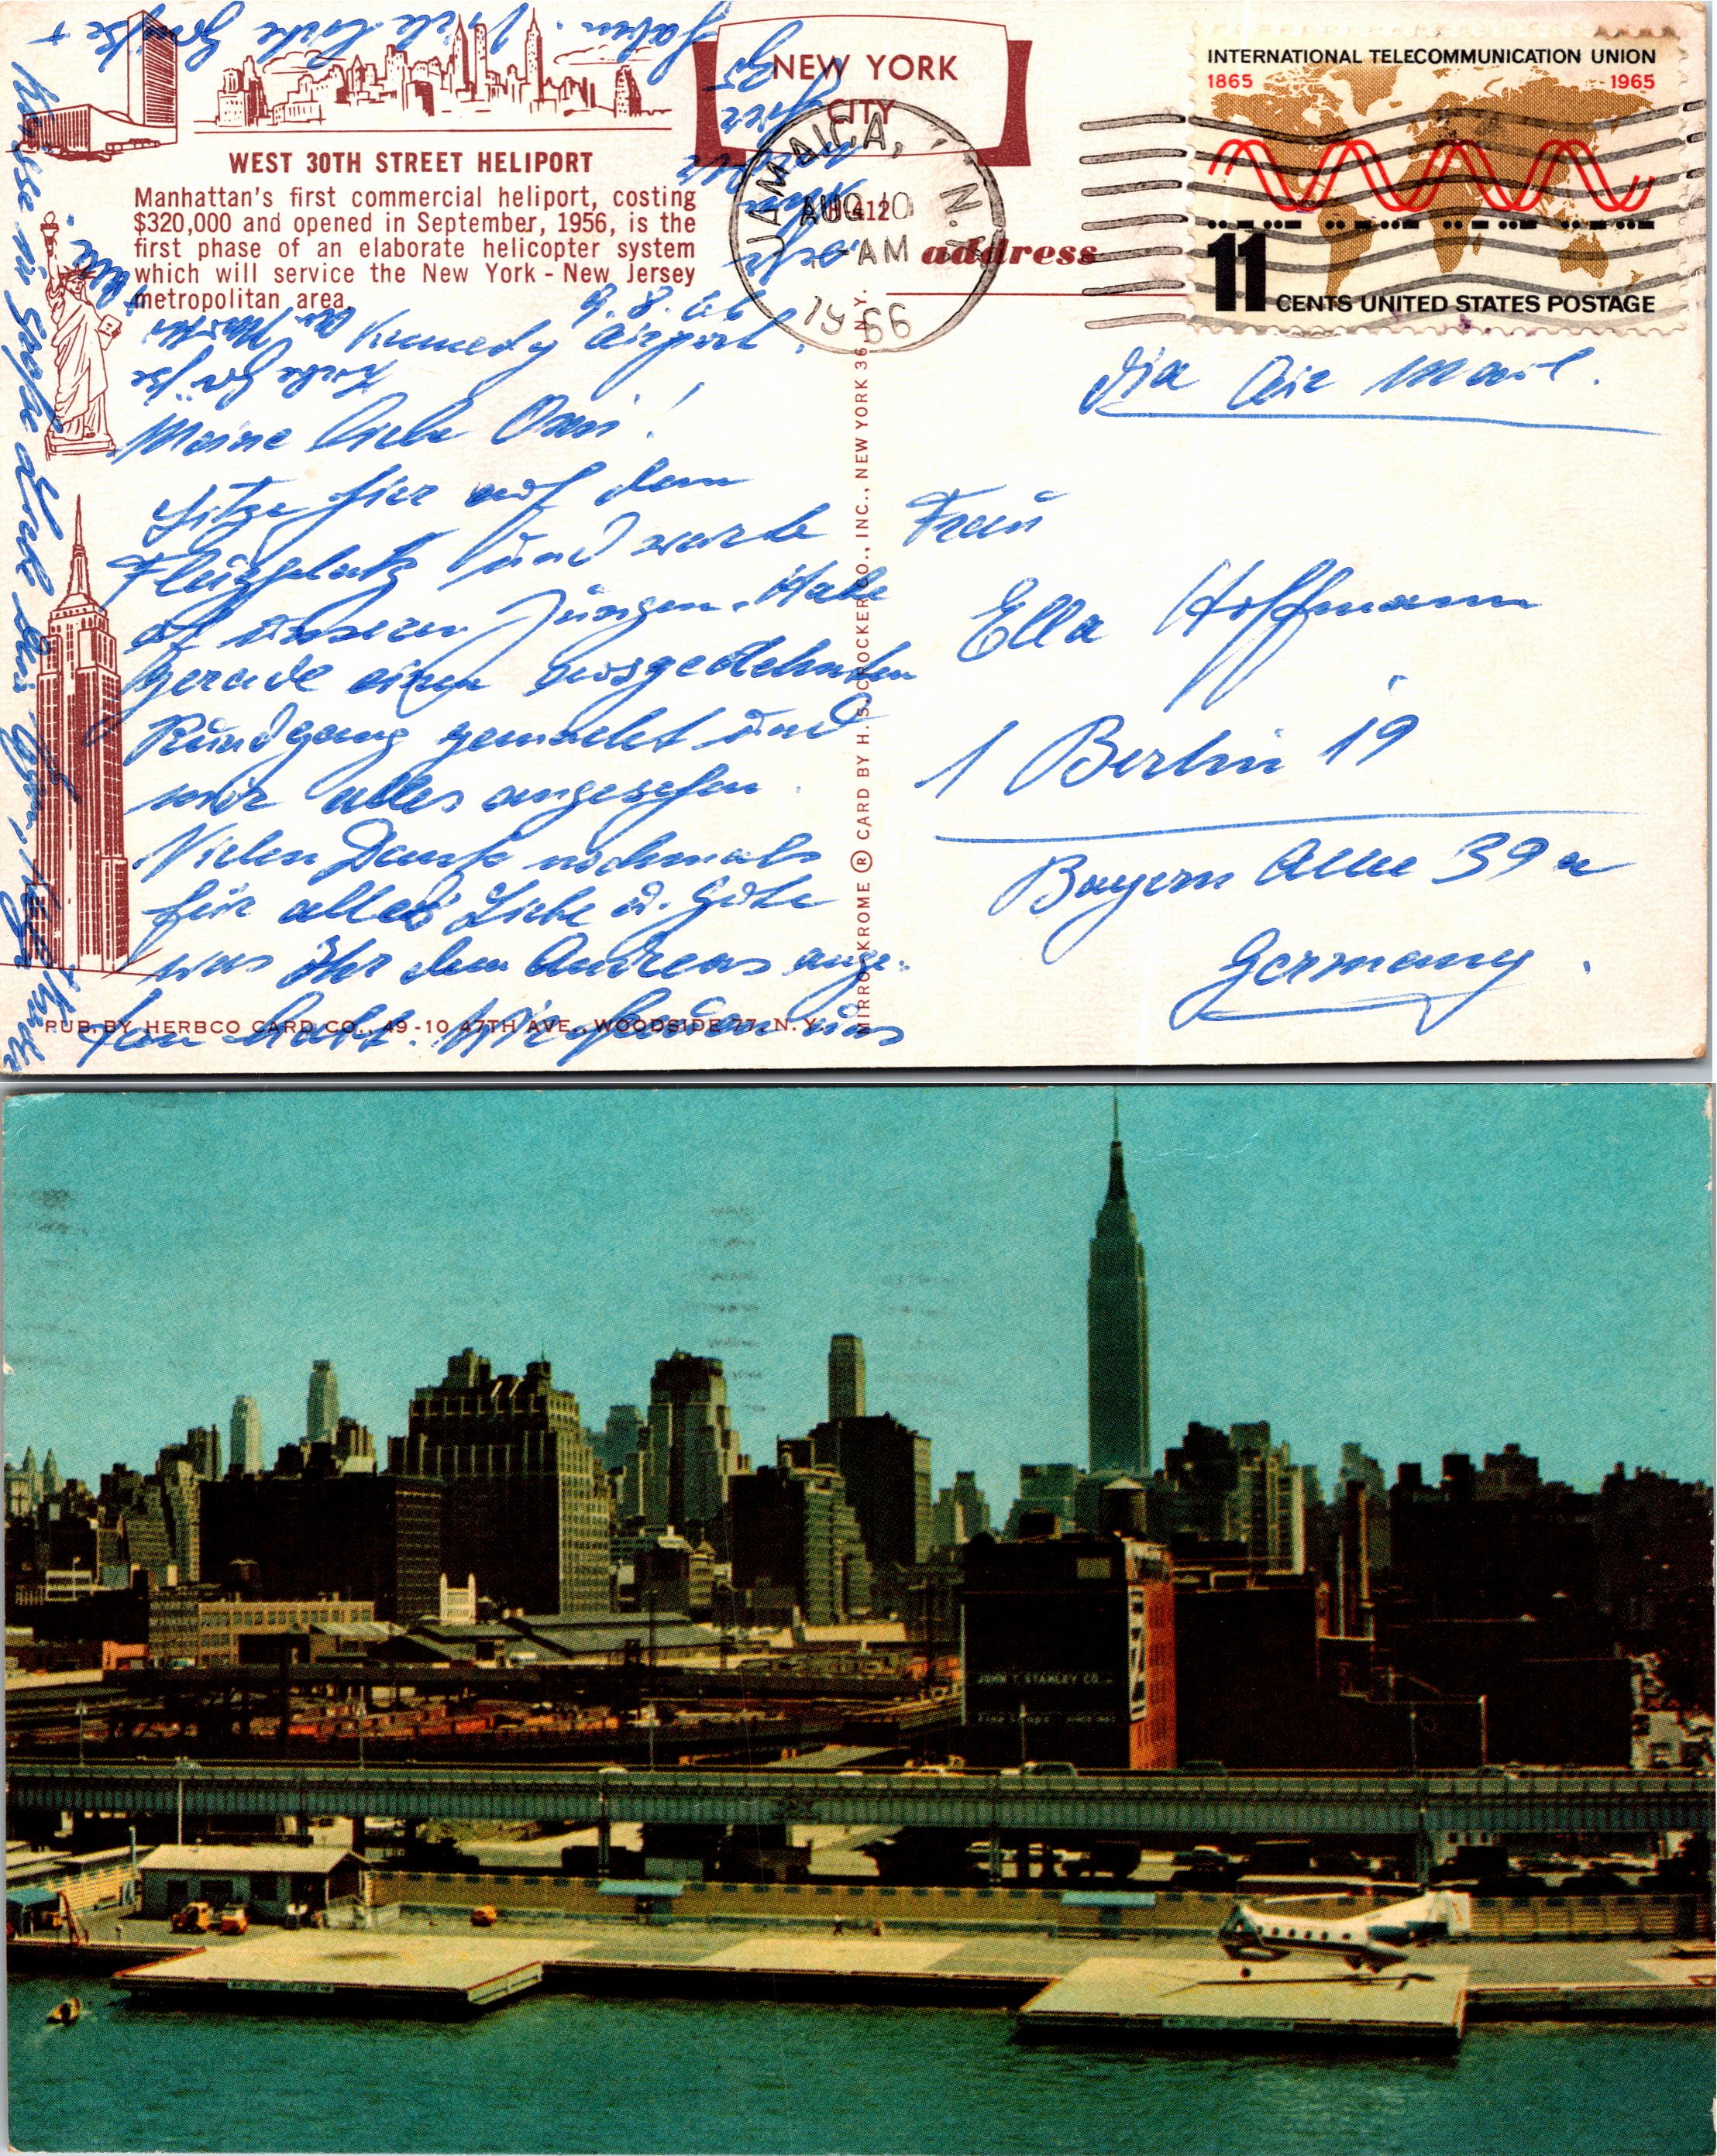 NEW YORK
CITY
WEST 30TH STREET HELIPORT
Manhattan's first commercial heliport, costing
$320,000 and opened in September, 1956, is the
first phase of an elaborate helicopter system
which will service the New York - New Jersey
metropolitan area.
INTERNATIONAL TELECOMMUNICATION UNION
1865 1965
11 CENTS UNITED STATES POSTAGE
JAMAICA, N.Y.
AUG 10
AM
1966
412
address
9.8.66
Kennedy Airport.
Meine liebe Omi!
Sitze hier auf dem
Flugplatz und warte
auf unseren Jungen. Habe
gerade einen ausgedehnten
Rundgang gemacht und
mir alles angesehen.
Vielen Dank nochmals
für alles Liebe u. Gute
was Ihr dem Andreas ange-
tan habt. Wir freuen uns
haben. Viele liebe Grüße +
Küsse
via Air Mail.
Frau
Ella Hoffmann
1 Berlin 19
Bayern Allee 39a
Germany.
MIRRO-KROME ® CARD BY H. S. CROCKER CO., INC., NEW YORK 36, N.Y.
PUB. BY HERBCO CARD CO., 49-10 47TH AVE., WOODSIDE 77, N.Y.
JOHN T. STANLEY CO.
Fine Soaps